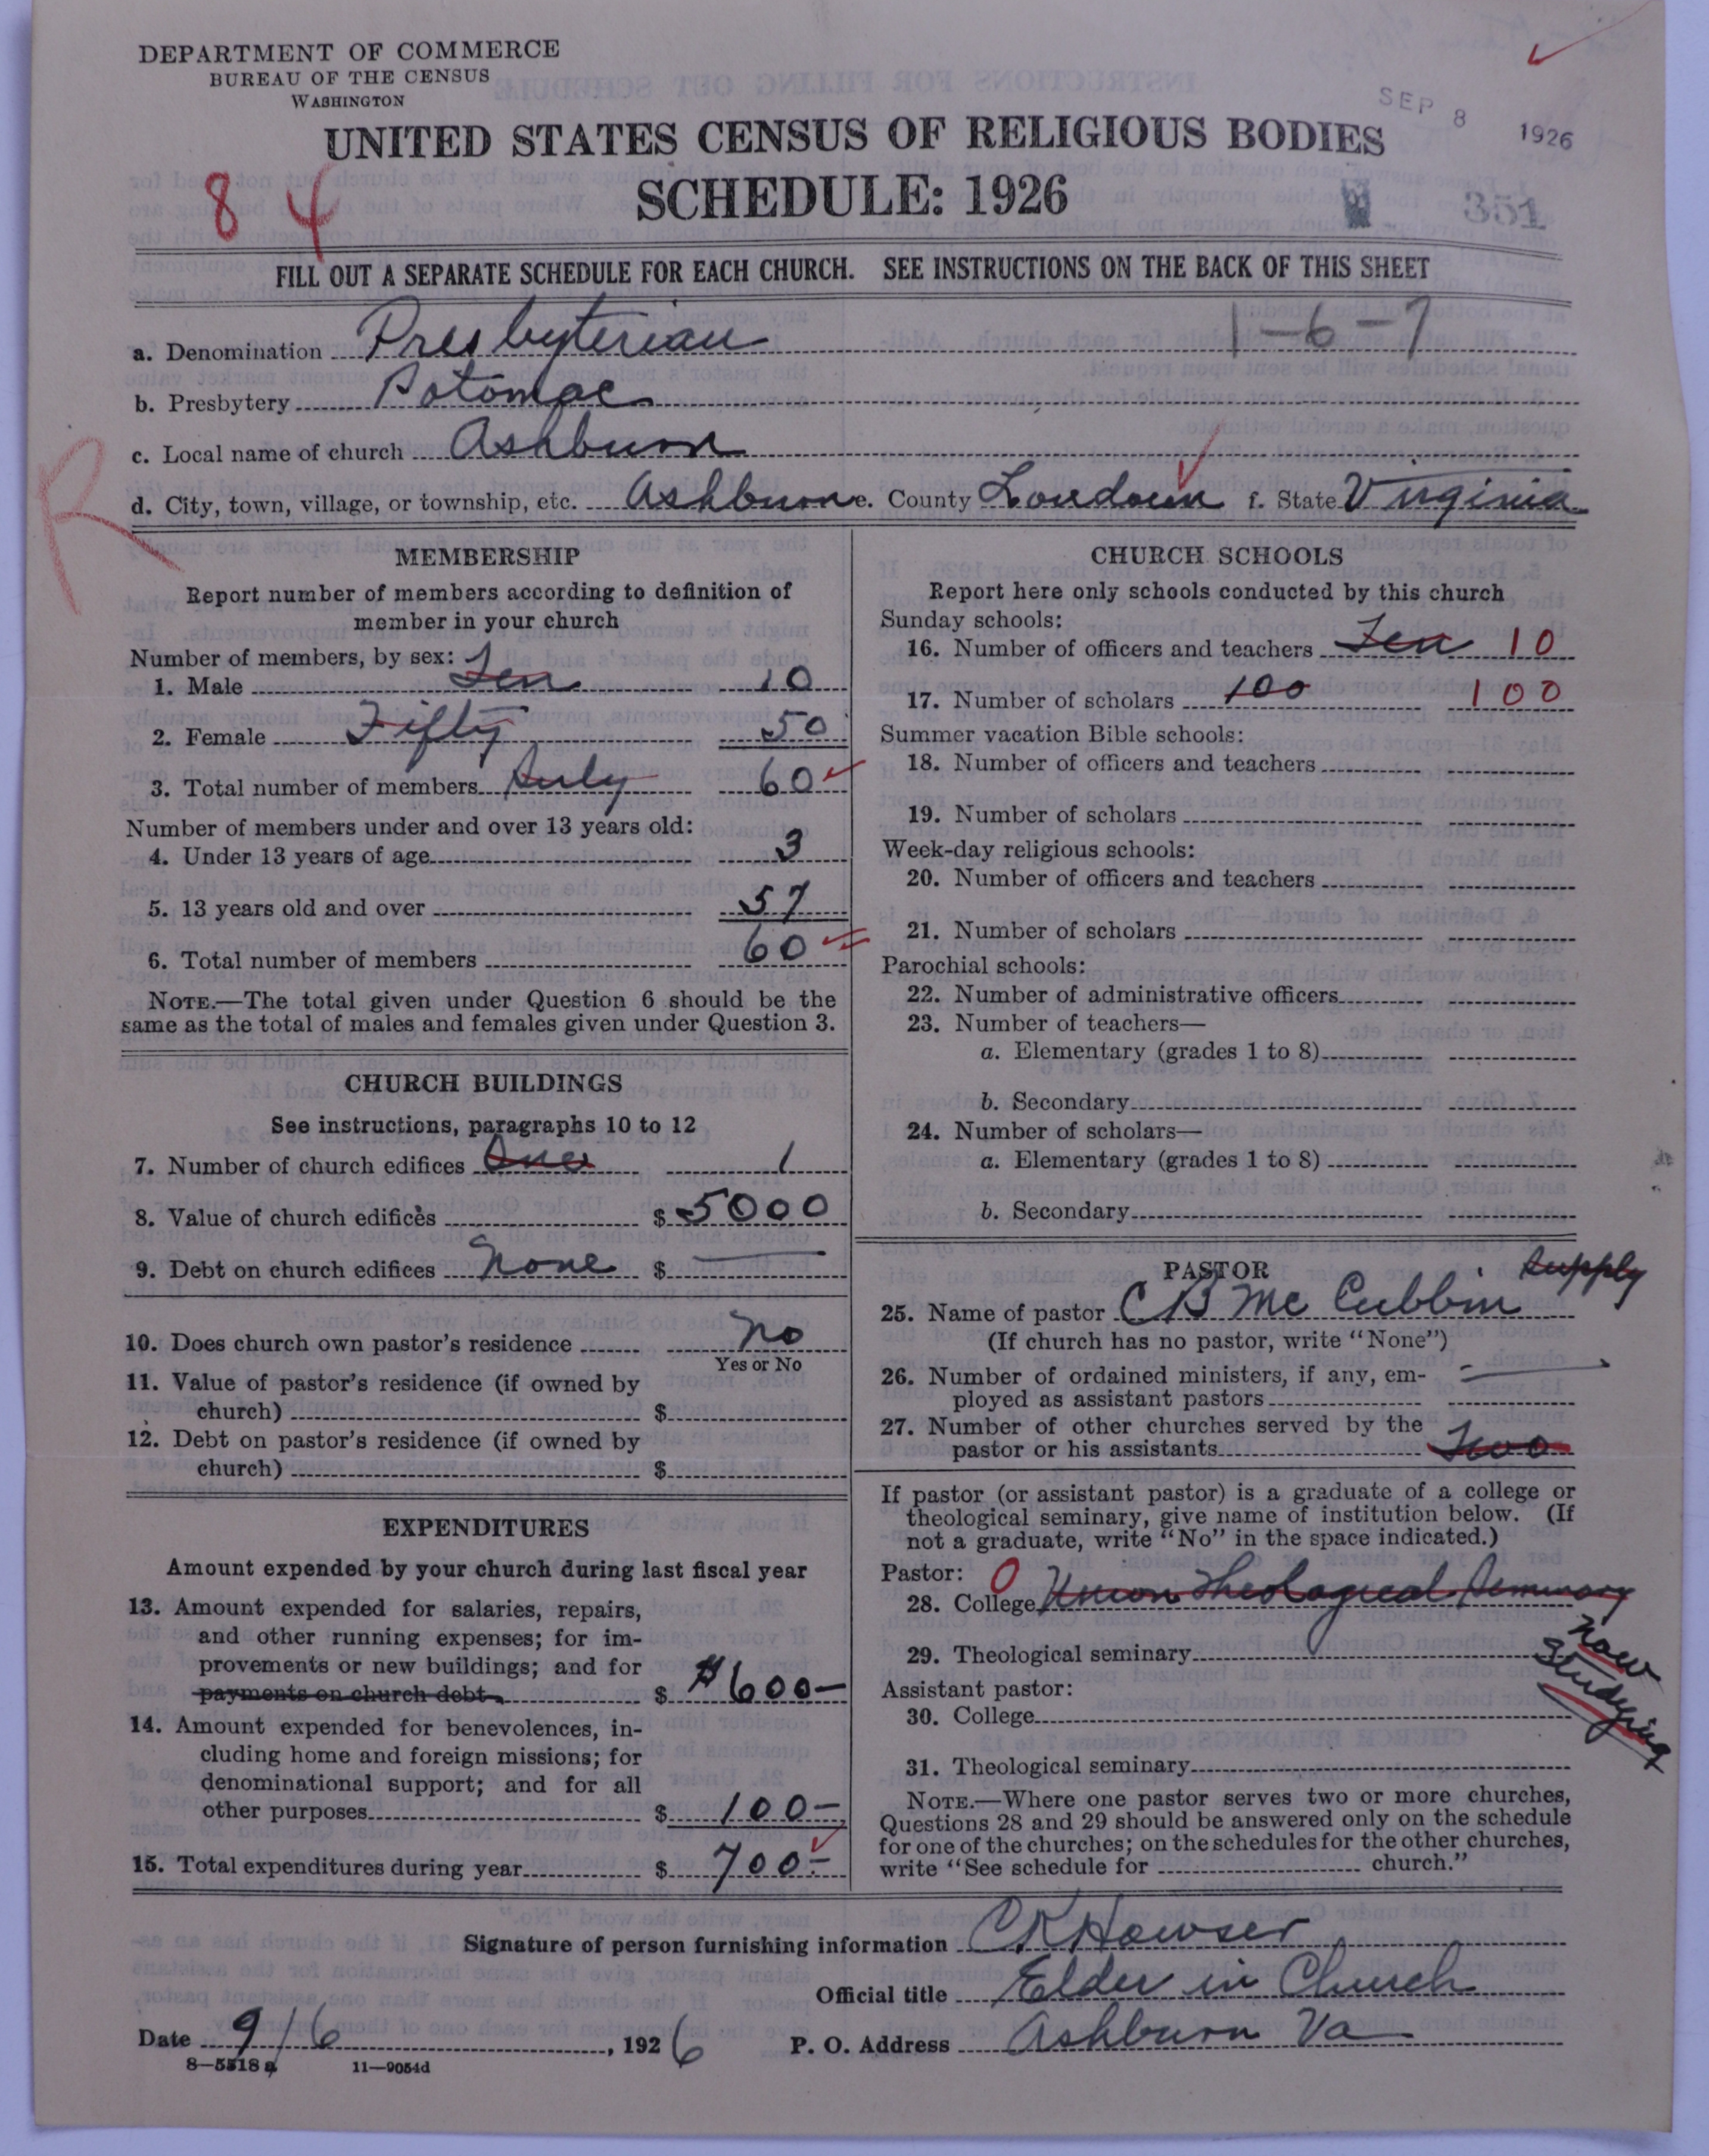 DEPARTMENT OF COMMERCE
BUREAU OF THE CENSUS
WASHINGTON
SEP 8 1926
UNITED STATES CENSUS OF RELIGIOUS BODIES
84
SCHEDULE: 1926
351
FILL OUT A SEPARATE SCHEDULE FOR EACH CHURCH. SEE INSTRUCTIONS ON THE BACK OF THIS SHEET
1-6-7
a. Denomination Presbyterian
b. Presbytery Potomac
c. Local name of church Ashburn
R
d. City, town, village, or township, etc. Ashburn e. County Loudoun f. State Virginia
MEMBERSHIP
Report number of members according to definition of
member in your church
Number of members, by sex:
1. Male Ten 10
2. Female Fifty 50
3. Total number of members 60
Number of members under and over 13 years old:
4. Under 13 years of age 3
5. 13 years old and over 57
6. Total number of members 60
NOTE.—The total given under Question 6 should be the
same as the total of males and females given under Question 3.
CHURCH BUILDINGS
See instructions, paragraphs 10 to 12
7. Number of church edifices One 1
8. Value of church edifices $ 5000
9. Debt on church edifices None $ —
10. Does church own pastor's residence No
Yes or No
11. Value of pastor's residence (if owned by
church) $
12. Debt on pastor's residence (if owned by
church) $
EXPENDITURES
Amount expended by your church during last fiscal year
13. Amount expended for salaries, repairs,
and other running expenses; for im-
provements or new buildings; and for
payments on church debt $ $600—
14. Amount expended for benevolences, in-
cluding home and foreign missions; for
denominational support; and for all
other purposes $ 100—
15. Total expenditures during year $ 700—
CHURCH SCHOOLS
Report here only schools conducted by this church
Sunday schools:
16. Number of officers and teachers Ten 10
17. Number of scholars 100 100
Summer vacation Bible schools:
18. Number of officers and teachers
19. Number of scholars
Week-day religious schools:
20. Number of officers and teachers
21. Number of scholars
Parochial schools:
22. Number of administrative officers
23. Number of teachers—
a. Elementary (grades 1 to 8)
b. Secondary
24. Number of scholars—
a. Elementary (grades 1 to 8)
b. Secondary
PASTOR Supply
25. Name of pastor C B McCubbin
(If church has no pastor, write "None")
26. Number of ordained ministers, if any, em-
ployed as assistant pastors —
27. Number of other churches served by the
pastor or his assistants Two
If pastor (or assistant pastor) is a graduate of a college or
theological seminary, give name of institution below. (If
not a graduate, write "No" in the space indicated.)
Pastor: 0
28. College Union Theological Seminary
29. Theological seminary
Now
Studying
Assistant pastor:
30. College
31. Theological seminary
NOTE.—Where one pastor serves two or more churches,
Questions 28 and 29 should be answered only on the schedule
for one of the churches; on the schedules for the other churches,
write "See schedule for church."
Signature of person furnishing information C K Howser
Official title Elder in Church
Date 9/6, 1926 P. O. Address Ashburn Va
8—5518 a 11—9054d